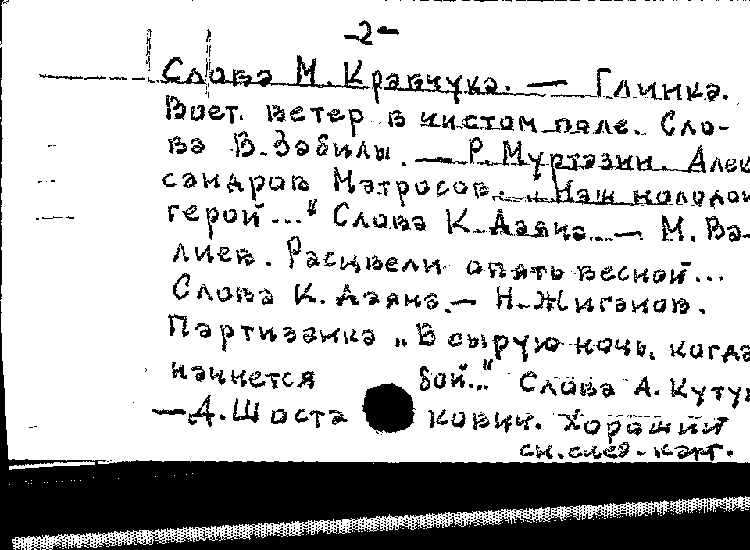 -2-
Слова М. Кравчука. — Глинка.
Воет. ветер в чистом поле. Сло-
ва В. Забилы. — Р. Муртазин. Алек
сандров Матросов. „Наш молодой
герой..." Слова К. Даяна. — М. Ва-
лиев. Расцвели опять весной...
Слова К. Даяна. — Н. Жиганов.
Партизанка „В сырую ночь, когда
начнется бой..." Слова А. Кутуя
— Д. Шоста кович. Хороший
см. след. карт.